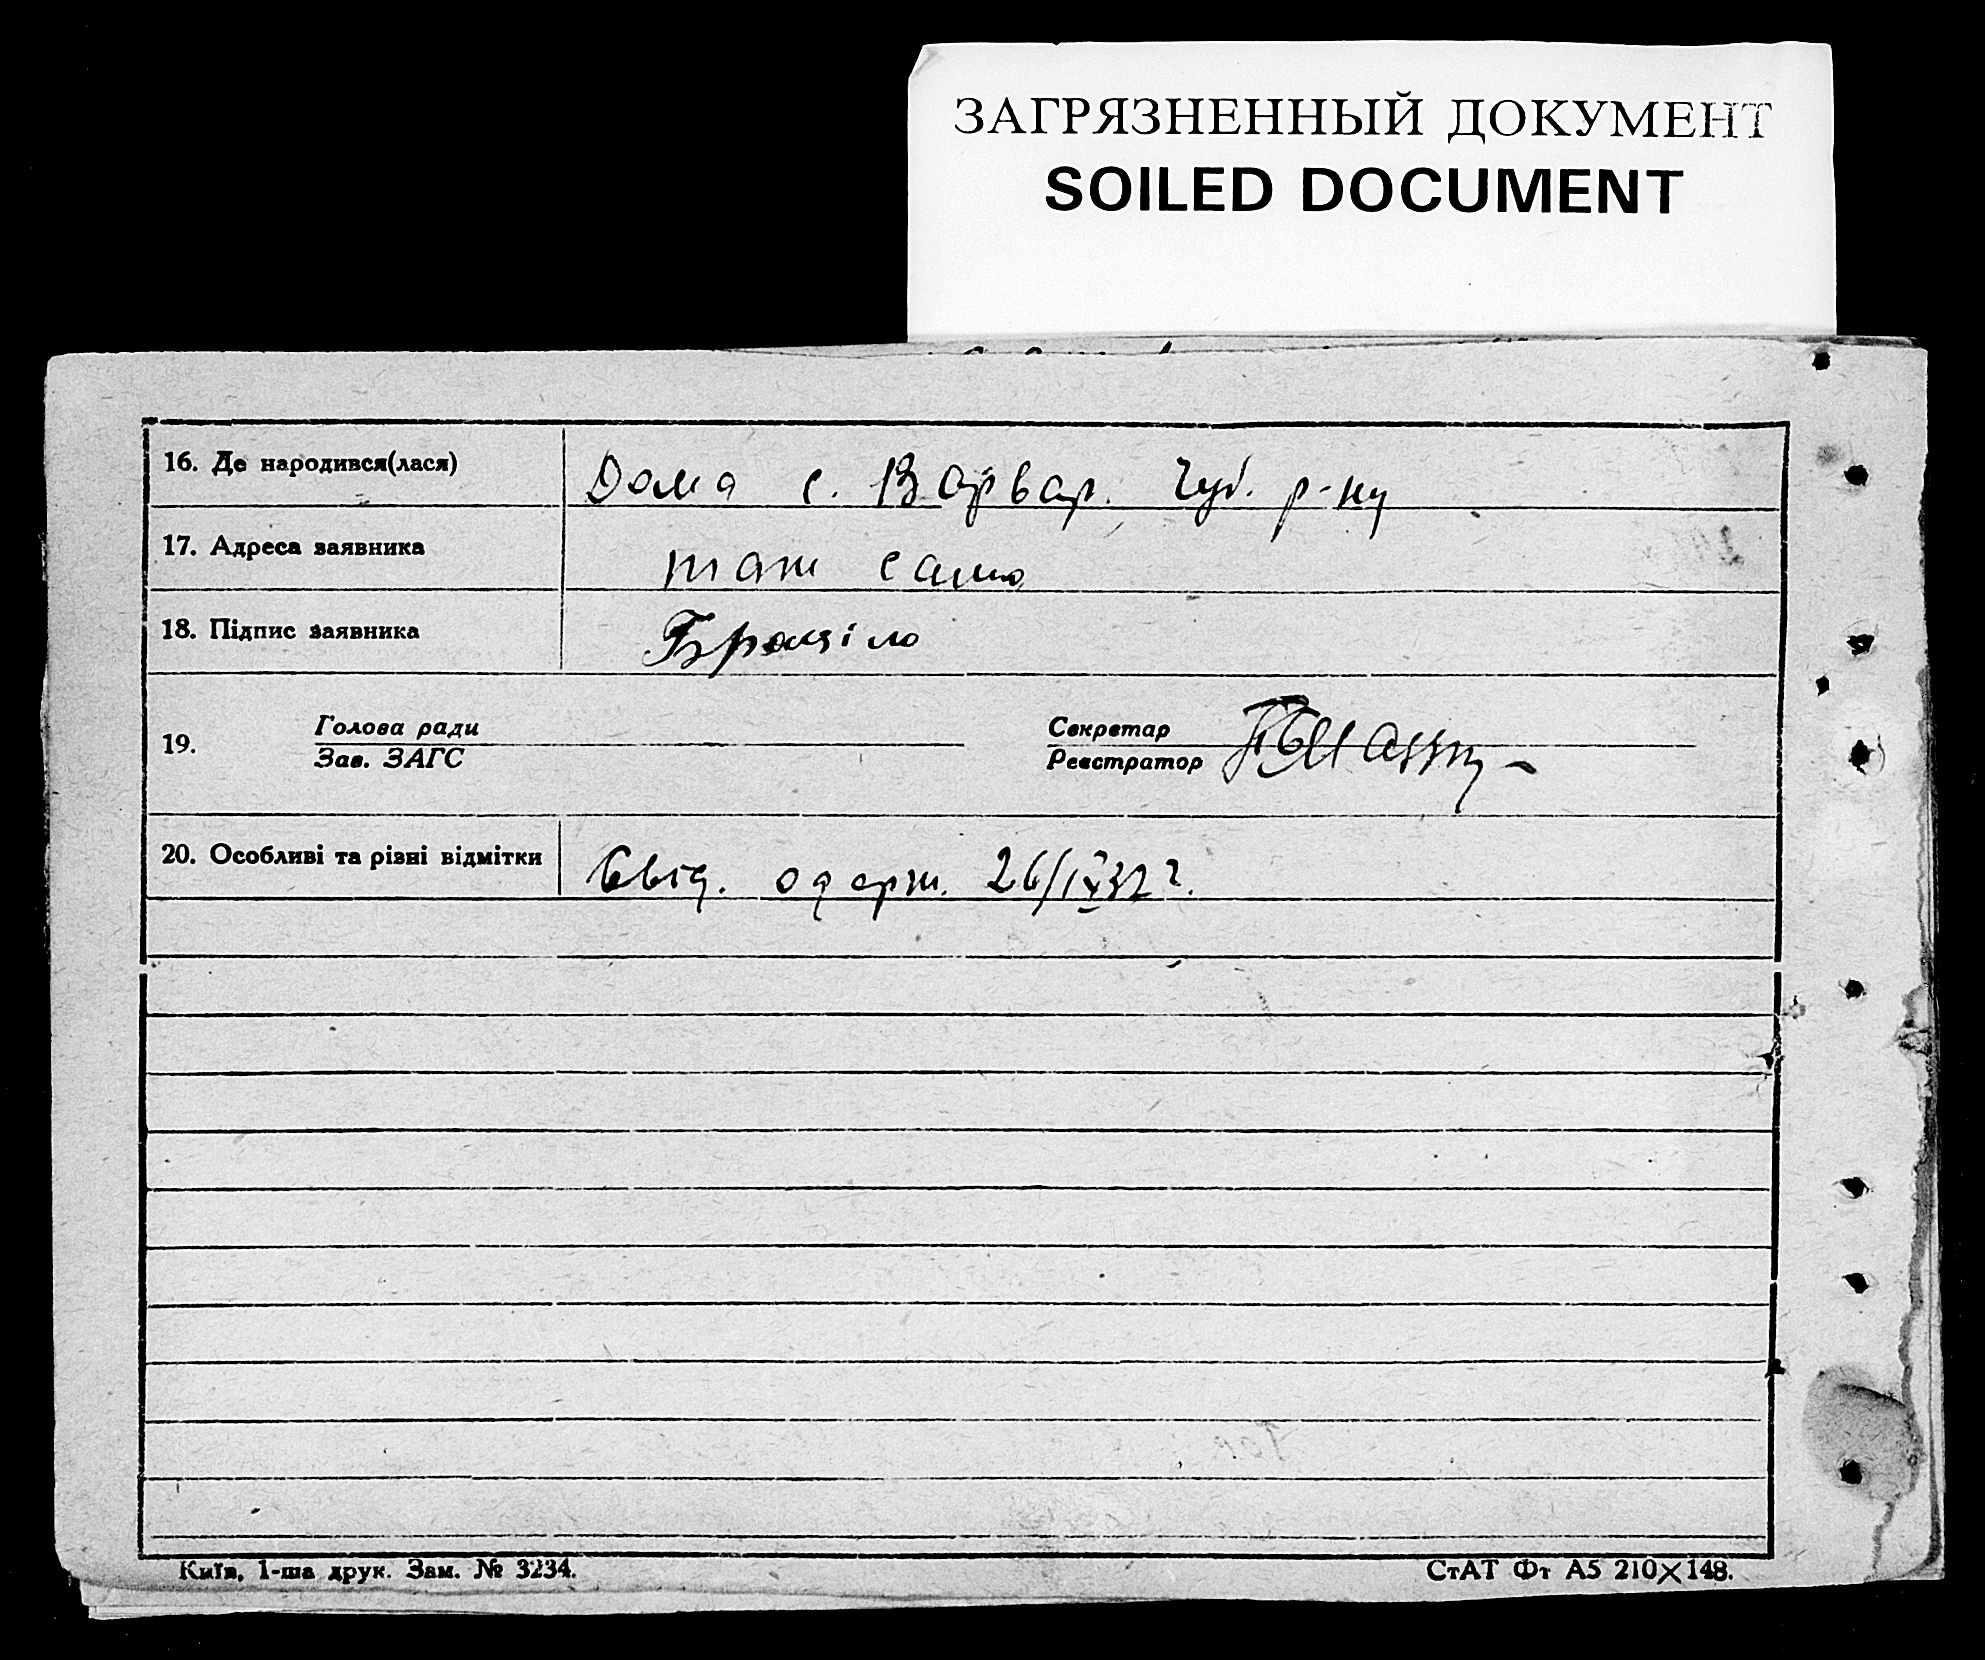 ЗАГРЯЗНЕННЫЙ ДОКУМЕНТ
SOILED DOCUMENT
16. Де народився(лася) Дома с. Варвар. Чуб. р-ну
17. Адреса заявника там само
18. Підпис заявника
19. Голова ради
Зав. ЗАГС
Секретар
Реєстратор
20. Особливі та різні відмітки Свід. одерж. 26/IX 32 г.
Київ, 1-ша друк. Зам. № 3234.
СтАТ Фт А5 210×148.